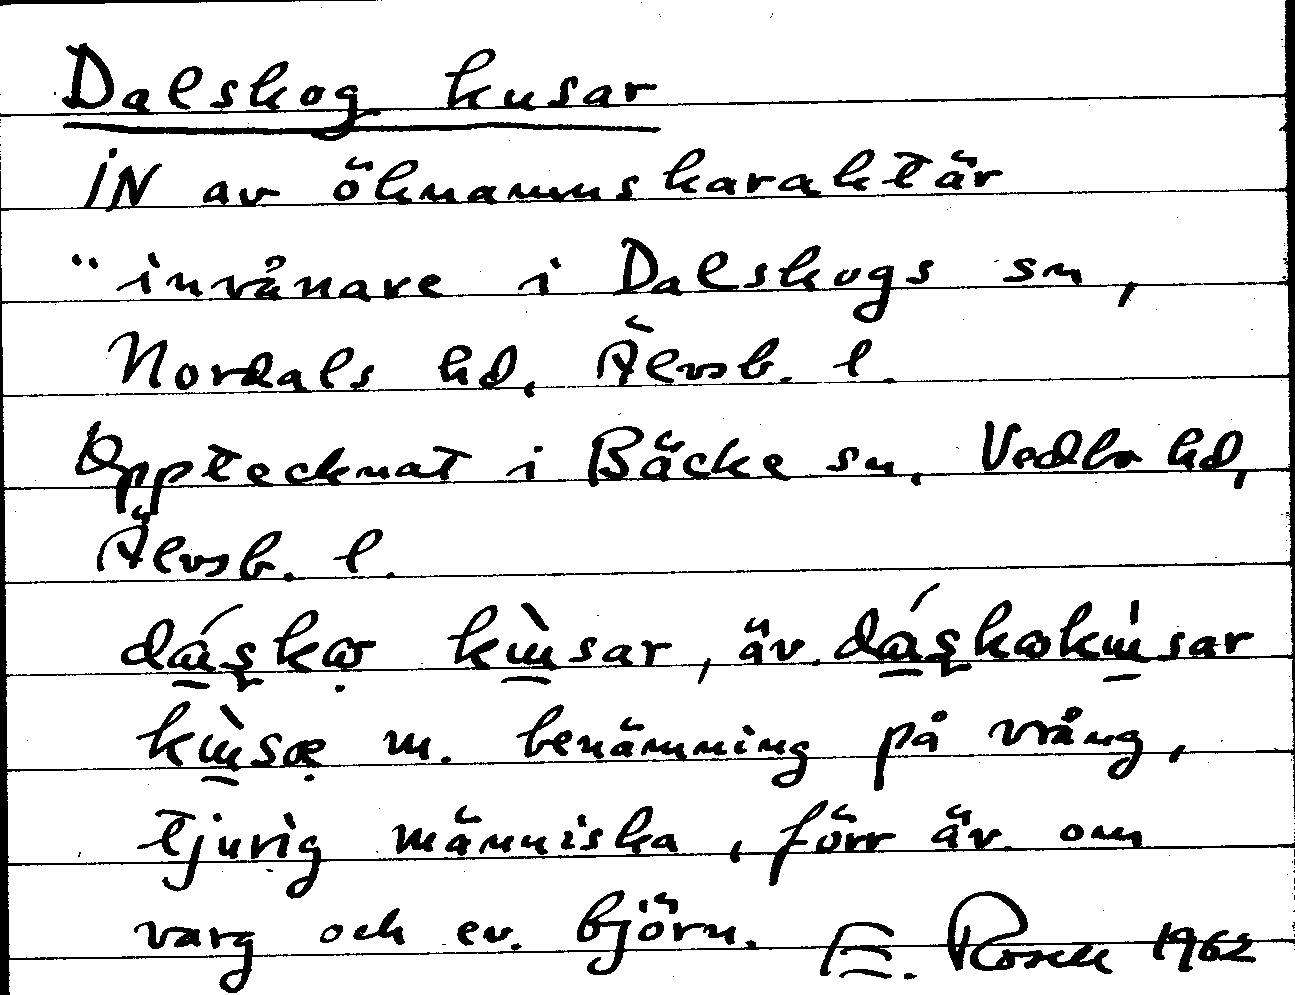 Dalskog kusar
IN av öknamnskaraktär
¨ invånare i Dalskogs sn,
Nordals hd, Älvsb. l.
Upptecknat i Bäcke sn, Vedbo hd,
Älvsb. l.
kusar, äv.
m. benämning på vrång,
tjurig människa, förr äv. om
varg och ev. björn. E. Rosell 1962